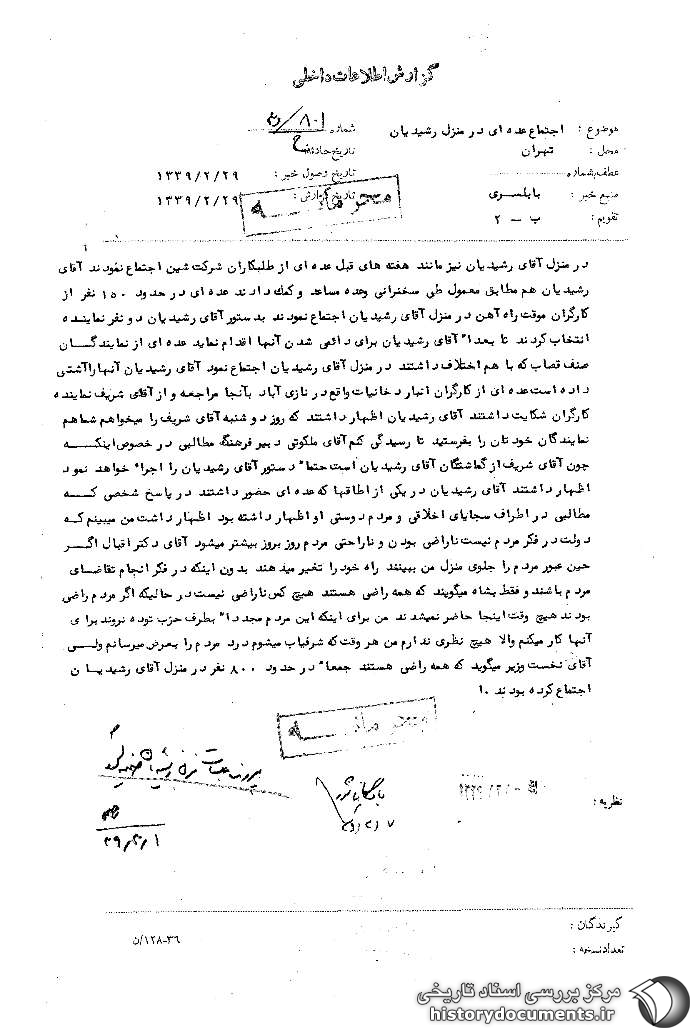 گزارش اطلاعات داخلی
موضوع : اجتماع عده ای در منزل رشیدیان شماره
محل : تهران تاریخ حادثه
عطف بشماره تاریخ وصول خبر : ۱۳۳۹/۲/۲۹
منبع خبر : بابلسری تاریخ گزارش : ۱۳۳۹/۲/۲۹
تقویم : ب - ۲
محرمانه
در منزل آقای رشیدیان نیز مانند هفته های قبل عده ای از طلبکاران شرکت شین اجتماع نمودند آقای
رشیدیان هم مطابق معمول طی سخنرانی وعده مساعد و کمک دادند عده ای در حدود ۱۵۰ نفر از
کارگران موقت راه آهن در منزل آقای رشیدیان اجتماع نمودند بدستور آقای رشیدیان دو نفر نماینده
انتخاب کردند تا بعدا" آقای رشیدیان برای دائمی شدن آنها اقدام نماید عده ای از نمایندگان
صنف قصاب که با هم اختلاف داشتند در منزل آقای رشیدیان اجتماع نمود آقای رشیدیان آنهاراآشتی
داده است عده ای از کارگران انبار دخانیات واقع در نازی آباد بآنجا مراجعه و از آقای شریف نماینده
کارگران شکایت داشتند آقای رشیدیان اظهار داشتند که روز دوشنبه آقای شریف را میخواهم شماهم
نمایندگان خودتان را بفرستید تا رسیدگی کنم آقای ملکوتی دبیر فرهنگ مطالبی در خصوص اینکه
چون آقای شریف از گماشتگان آقای رشیدیان است حتما" دستور آقای رشیدیان را اجرا خواهد نمود
اظهار داشتند آقای رشیدیان در یکی از اطاقها که عده ای حضور داشتند در پاسخ شخصی که
مطالبی در اطراف سجایای اخلاقی و مردم دوستی او اظهار داشته بود اظهار داشت من میبینم که
دولت در فکر مردم نیست ناراضی بودن و ناراحتی مردم روز بروز بیشتر میشود آقای دکتر اقبال اگر
حین عبور مردم را جلوی منزل من ببینند راه خود را تغییر میدهند بدون اینکه در فکر انجام تقاضای
مردم باشند و فقط بشاه میگویند که همه راضی هستند هیچ کس ناراضی نیست در حالیکه اگر مردم راضی
بودند هیچ وقت اینجا حاضر نمیشدند من برای اینکه این مردم مجددا" بطرف حزب توده نروند برای
آنها کار میکنم والا هیچ نظری ندارم من هر وقت که شرفیاب میشوم درد مردم را بعرض میرسانم ولی
آقای نخست وزیر میگوید که همه راضی هستند جمعا" در حدود ۸۰۰ نفر در منزل آقای رشیدیان
اجتماع کرده بودند
محرمانه
نظریه :
بایگانی شود
۳۹/۳/۱
گیرندگان :
تعداد نسخه :
۳۶-۱۲۸/ن
مرکز بررسی اسناد تاریخی
historydocuments.ir